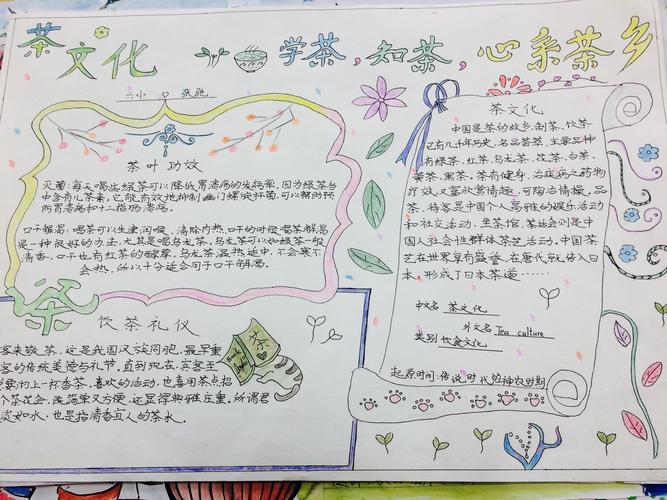 茶文化
学茶,知茶,心系茶乡
六小 张驰
茶叶 功效
灭菌:每天喝些绿茶可以降低胃溃疡的发病率,因为绿茶当
中含有儿茶素,它能有效地抑制幽门螺旋杆菌,可以帮助预
防胃溃疡和十二指肠溃疡。
口干解渴:喝茶可以生津润喉,清除内热,口干的时侯喝茶解渴
是一种很好的办法,尤其是喝乌龙茶,乌龙茶可以如绿茶一般
清香,口干也有红茶的醇厚,乌龙茶温热适中,不会寒不
会热,所以十分适合用于口干解渴。
茶
饮茶礼仪
客来敬茶,这是我国汉族同胞,最早重
客的传统美德与礼节,直到现在,宾客至
沏上一杯香茶,喜欢的活动,也喜用茶点招
个茶话会,既简单又方便,还显得典雅庄重,所谓君
淡如水,也是指清香宜人的茶水
Book
茶
茶文化
中国是茶的故乡,制茶、饮茶
已有几千年历史,名品荟萃,主要品种
有绿茶、红茶、乌龙茶、饮茶、白茶、
黄茶、黑茶。茶有健身、治疾病之药物
疗效,又富欣赏情趣,可陶冶情操。品
茶、待客是中国个人高雅的娱乐活动
和社交活动,坐茶馆、茶话会则是中
国人社会性群体茶艺活动。中国茶
艺在世界享有盛誉,在唐代就传入日
本,形成了日本茶道……
中文名 茶文化
外文名 Tea culture
类别 饮食文化
起源时间:传说时代的神农时期